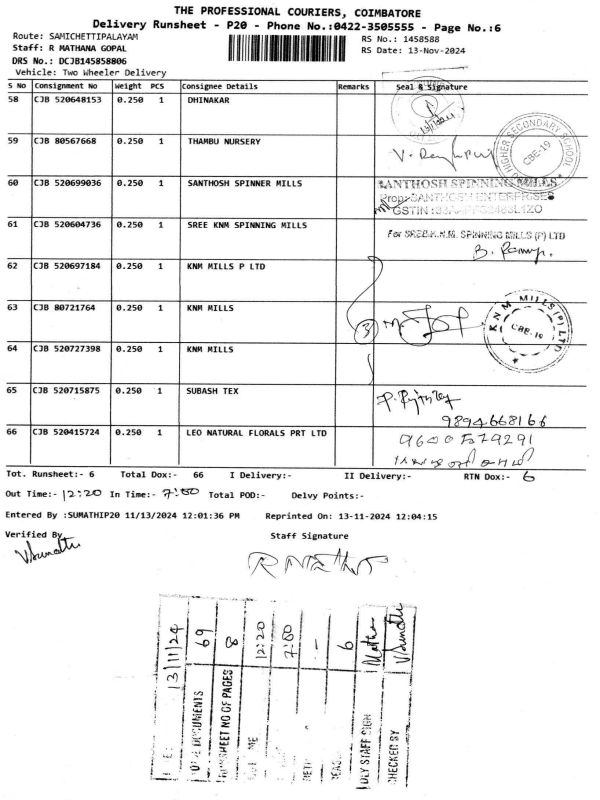 THE PROFESSIONAL COURIERS, COIMBATORE
Delivery Runsheet - P20 - Phone No.:0422-3505555 - Page No.:6
Route: SAMICHETTIPALAYAM
RS No.: 1458588
Staff: R MATHANA GOPAL
RS Date: 13-Nov-2024
DRS No.: DCJB145858806
Vehicle: Two Wheeler Delivery
S No Consignment No Weight PCS Consignee Details Remarks Seal & Signature
58 CJB 520648153 0.250 1 DHINAKAR
13/11/24
59 CJB 80567668 0.250 1 THAMBU NURSERY
HIGHER SECONDARY SCHOOL
CBE-19
60 CJB 520699036 0.250 1 SANTHOSH SPINNER MILLS
SANTHOSH SPINNING MILLS
Prop: SANTHOSH ENTERPRISES
GSTIN
61 CJB 520604736 0.250 1 SREE KNM SPINNING MILLS
For SREE K.N.M. SPINNING MILLS (P) LTD
62 CJB 520697184 0.250 1 KNM MILLS P LTD
63 CJB 80721764 0.250 1 KNM MILLS
3
KNM MILLS (P) LTD
CBE-19
64 CJB 520727398 0.250 1 KNM MILLS
65 CJB 520715875 0.250 1 SUBASH TEX
9894668166
66 CJB 520415724 0.250 1 LEO NATURAL FLORALS PRT LTD
9600579291
Tot. Runsheet:- 6 Total Dox:- 66 I Delivery:- II Delivery:- RTN Dox:- 6
Out Time:- 12:20 In Time:- 7:00 Total POD:- Delvy Points:-
Entered By :SUMATHIP20 11/13/2024 12:01:36 PM Reprinted On: 13-11-2024 12:04:15
Verified By
Staff Signature
13/11/24
DOCUMENTS 69
RUNSHEET NO OF PAGES 8
12:20
7:00
-
6
DLY STAFF SIGN Matha
CHECKED BY